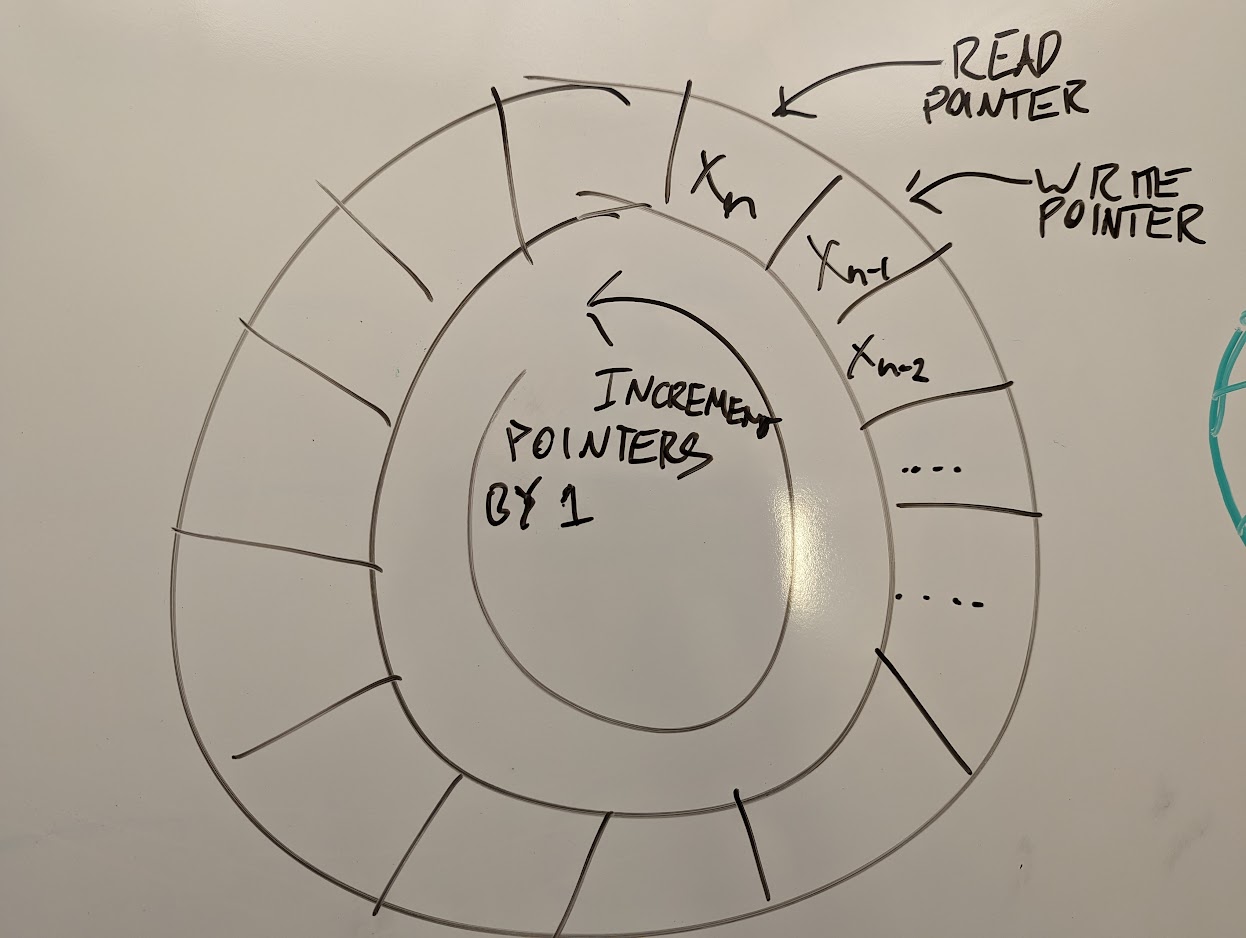 READ
POINTER
WRITE
POINTER
Xn
Xn-1
Xn-2
....
....
INCREMENT
POINTERS
BY 1